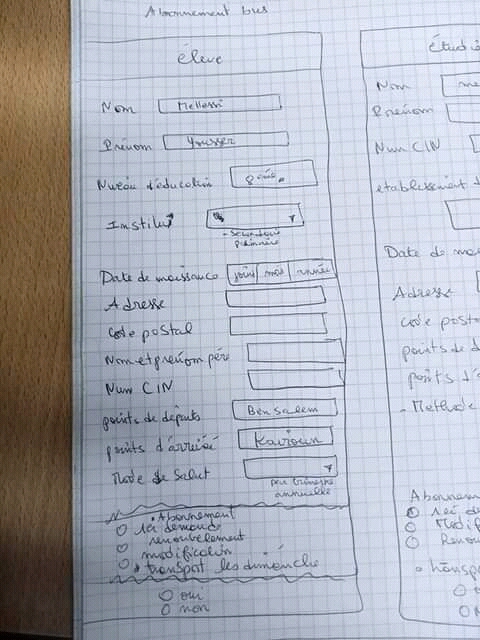 Abonnement bus
éleve
Nom Mellassi
Prénom Yousser
Niveau d'éducation 8 éme
Institut
- Secondaire
primaire
Date de naissance jour mois année
Adresse
Code postal
Nom et prénom pére
Num CIN
points de départs Ben Salem
points d'arrivée Kairoun
Mode de
par trimestre
annuelle
Abonnement
1ér demand
renouvelement
modification
transport les dimanche
oui
non
Nom me
Prénom
Num CIN
etablissement
Date de naissa
Adresse
code posta
points de d
points d'a
- Methode
Abonnemen
1ér de
Modif
Renou
- transp